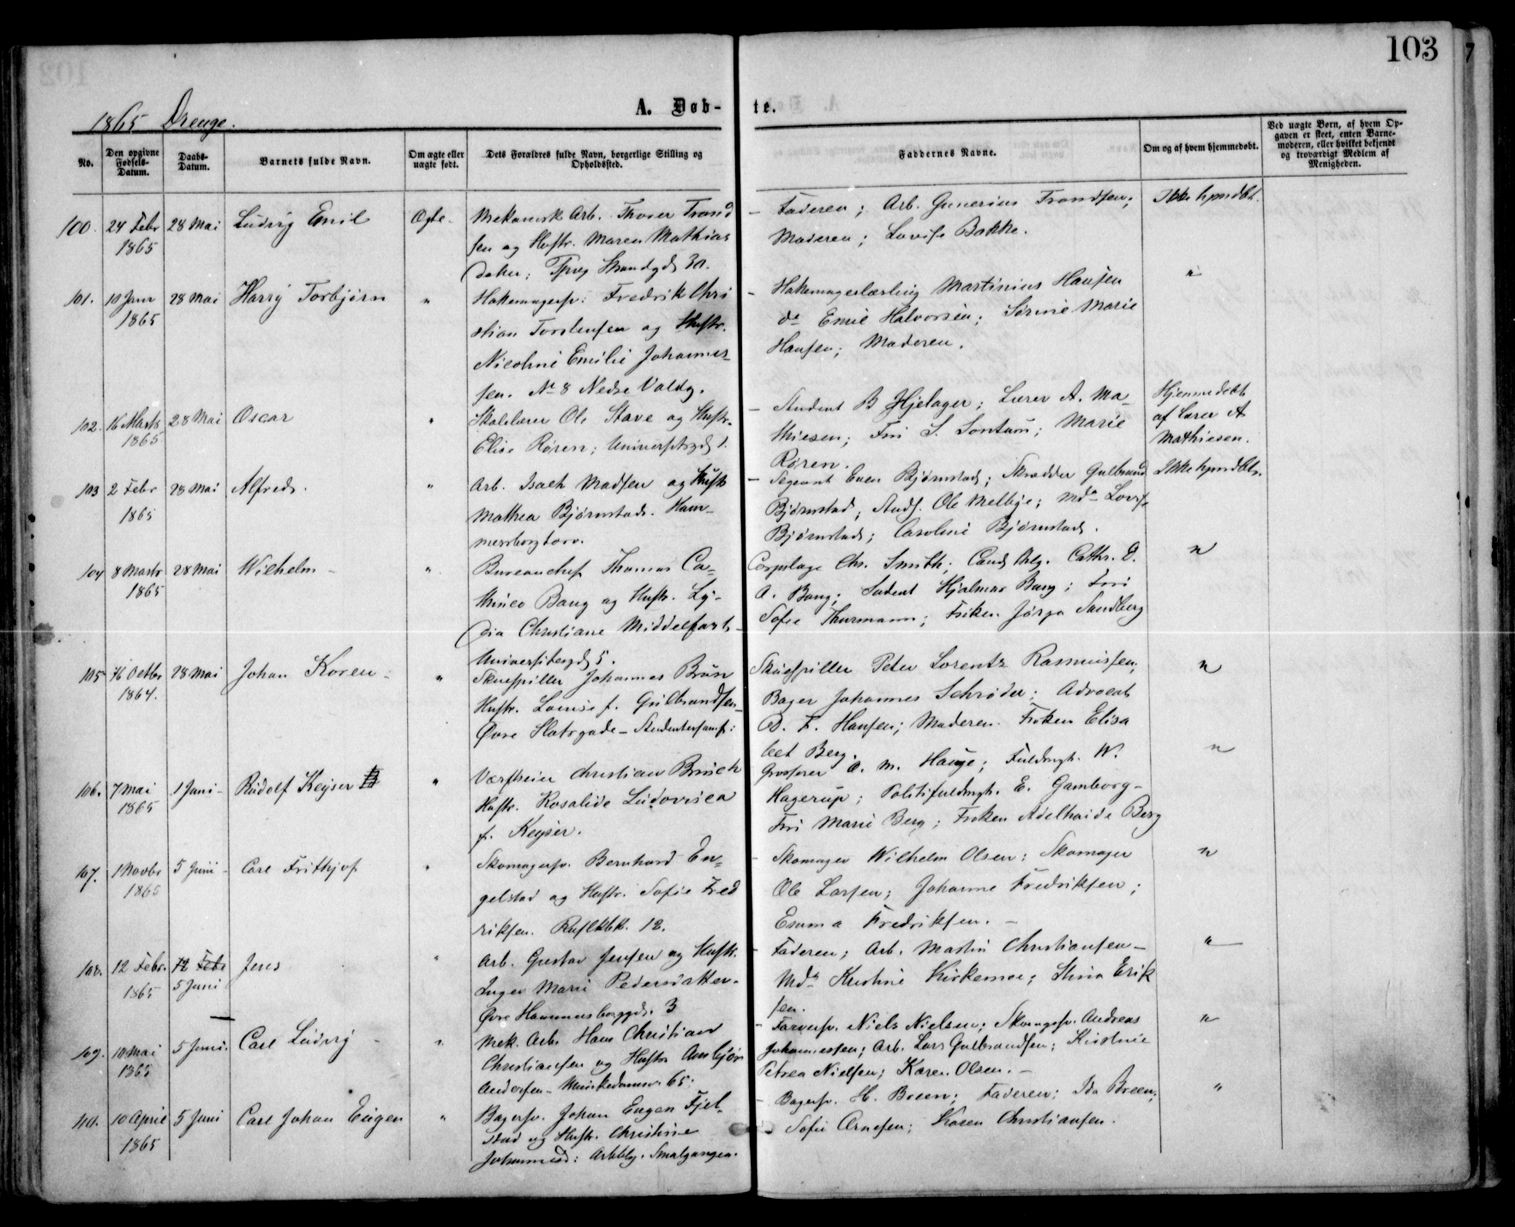 103
1865 Drenge.
A. Døb- te.
No.
Den opgivne Fødsels-Datum.
Daabs-Datum.
Barnets fulde Navn.
Om ægte eller uægte født.
Dets Forældres fulde Navn, borgerlige Stilling og Opholdssted.
Faddernes Navne.
Om og af hvem hjemmedøbt.
Ved uægte Børn, af hvem Opgaven er skeet, enten Barnemoderen, eller hvilket bekjendt og troværdigt Medlem af Menigheden.
100. 24 Febr 28 Mai Ludvig Emil Ægte. Mekanisk Arb. Thorer Trond – Faderen; Arb. Gunerius Trondsen; Ikke hjmdbt.
1865 sen og Hustr. Maren Mathias Moderen; Lovise Bakke.
datter;
101. 10 Janr 28 Mai Harry Torbjørn " Fredrik Chri – Martinius Hansen "
1865 stian Torstensen og Hustr. Emil Halvorsen; Serine Marie
Nicoline Emilie Johannes- Hansen; Moderen.
sen. No 8 Nedre Voldg.
102. 16 Marts 28 Mai Oscar " Skolelærer Ole Stave og Hustr. – Student B Hjelager; Lærer A. Ma- Hjemmedøbt
1865 Elise Røren; Universitetsgd 1. thiesen; Frk S. Sontum; Marie af Lærer A
Røren. Mathiesen.
103 2 Febr 28 Mai Alfred. " Arb. Isach Madsen og Hustr – Sergeant Even Bjørnstad; Skrædder Gulbrand Ikke hjmdbt.
1865 Mathea Bjørnstad. Ham- Bjørnstad; Ole Melbye; Md. Lovise
mersborgtorv. Bjørnstad; Caroline Bjørnstad.
104 8 Marts 28 Mai Wilhelm – " Bureauchef Thomas Ca- Corpslæge Chr. Smith; Cand. Cathr. D. "
1865 thinco Bang og Hustr. Ly- A. Bang; Student Hjalmar Bang; Fru
dia Christiane Middelfart – Sofie Thurmann; Frøken Jørga Sandberg
Universitetsgd 5.
105 16 Octbr 28 Mai Johan Koren – " Skuespiller Johannes Brun Skuespiller Peter Lorentz Rasmussen; "
1864. Hustr. Louise f. Gulbrandsen – Bager Johannes Schrøder; Advocat
Øvre Slotsgade – Studentersamf: D. F. Hansen; Moderen. Frøken Elisa
bet Berg.
106. 7 Mai 1 Juni – Rudolf Keyser " Værtseier Christian Brinch Grosserer A. M. Hauge; Fuldmgt. W. "
1865 Hustr. Rosalide Ludovica Hagerup; Politifuldmgt. E. Gamborg –
f. Keyser. Fru Marie Berg; Frøken Adelhaide Berg
107. 1 Novbr 5 Juni – Carl Frithjof " Skomagersv. Bernhard En- – Skomager Wilhelm Olsen; Skomager "
1865 gelstad og Hustr. Sofie Fred Ole Larsen; Johanne Fredriksen;
riksen. 12. Emma Fredriksen. –
108. 12 Febr. 12 Febr Jens " Arb. Gustav Jensen og Hustr. – Faderen; Arb. Martin Christiansen – "
1865 5 Juni Inger Marie Pedersdatter. Md. Kirstine Kirkemoe; Stina Erik
Øvre Hammersborggd. 3 sen.
109. 10 Mai 5 Juni. Carl Ludvig – " Mek. Arb. Hans Christian – Farversv. Niels Nielsen; Skomagersv. Andreas "
1865 Christiansen og Hustr Annbjør Johannessen; Arb. Lars Gulbrandsen; Kirstine
Andersen – Munkedammsv. 65. Petrea Nielsen; Karen Olsen. –
110. 10 April 5 Juni Carl Johan Eugen " Bagersv. Johan Eugen Fjel- – Bagersv. H. Boien; Faderen; Ida Breen; "
1865 stad og Hustr. Christine – Sofie Arnesen; Karen Christiansen.
Johannesd: Arbblg. Smalgangen.